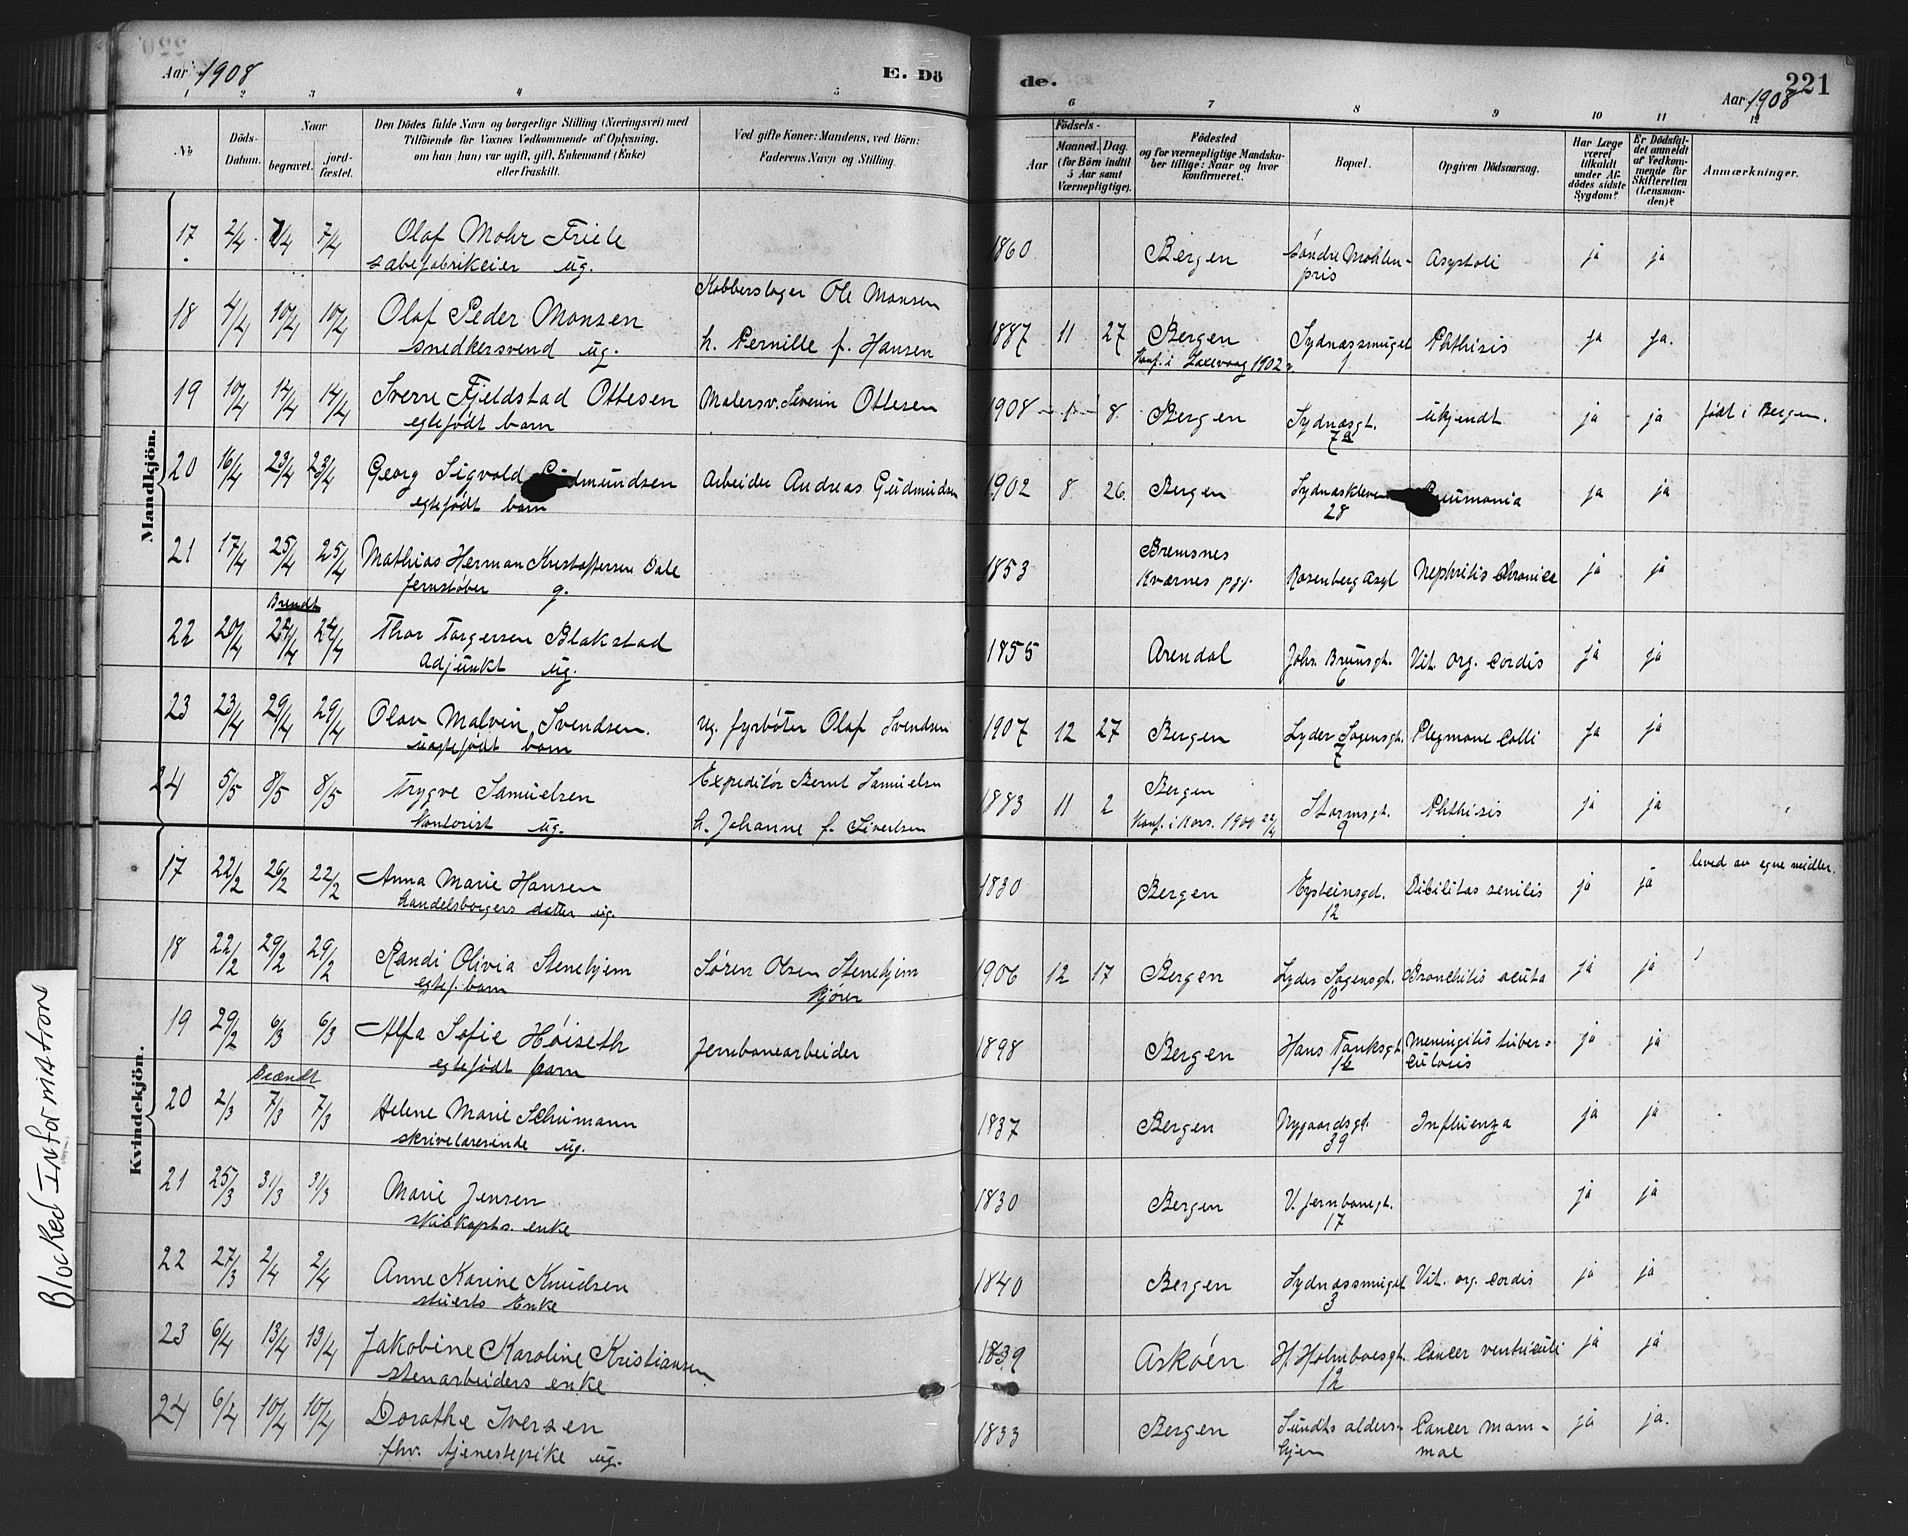 Aar 1908
E. Dö
de.
221
Aar 1908
1 2 3 4 5 6 7 8 9 10 11 12
No
Döds-Datum.
Naar
begravet.
jordfæstet.
Den Dödes fulde Navn og borgerlige Stilling (Næringsvei) med
Tilföiende for Voxnes Vedkommende af Oplysning,
om han (hun) var ugift, gift, Enkemand (Enke)
eller fraskilt.
Ved gifte Koner: Mandens, ved Börn:
Faderens Navn og Stilling.
Födsels-
Aar
Maaned. Dag
(for Börn indtil
5 Aar samt
Værnepligtige).
Födested
og for værnepligtige Mandska-
ber tillige: Naar og hvor
konfirmeret.
Bopæl.
Opgiven Dödsaarsag.
Har Læge
været
tilkaldt
under Af-
dödes sidste
Sygdom?
Er Dödsfal-
det anmeldt
af Vedkom-
mende for
Skifteretten
(Lensman-
den)?
Anmærkninger.
Mandkjön.
17 2/4 7/4 7/4 Olaf Mohr Friele 1860 Bergen söndre Möhlen- Asystoli ja ja
sæbefabrikeier ug. pris
18 4/4 10/4 10/4 Olaf Peder Monsen Kobberslager Ole Monsen 1887 11 27 Bergen Sydnæssmuget Phthisis ja ja.
snedkersvend ug. h. Pernille f. Hansen Konf. i Laxevaag 1902 1
19 10/4 14/4 14/4 Sverre Fjeldstad Ottesen Malersv. Severin Ottesen 1908 8 Bergen Sydnæsgt. ukjendt ja ja født i Bergen.
egtefødt barn 7a
20 16/4 23/4 23/4 Georg Sigvald Gudmundsen Arbeider Andreas Gudmundsen 1902 8 26 Bergen Sydnæskleven Pneumonia ja ja
egtefødt barn 28
21 17/4 25/4 25/4 Mathias Herman Kristoffersen Dale 1853 Bremsnes Rosenberg Asyl Nephritis chronica ja ja
jernstøber g. Kværnes pgj.
Brendt
22 20/4 24/4 24/4 Thor Torgersen Blakstad 1855 Arendal Johs. Brunsgt. Vit. org. cordis ja ja
Adjunkt ug. 6
23 23/4 29/4 29/4 Olav Malvin Svendsen. ug. fyrbøter Olaf Svendsen 1907 12 27 Bergen Lyder Sagensgt. Plegmone Colli ja ja
uægtefødt barn 7
24 5/5 8/5 8/5 Trygve Samuelsen Expeditör Bernt Samuelsen 1883 11 2 Bergen Stormsgt. Phthisis ja ja
Kontorist ug. h. Johanne f. Sivertsen Konf. i Kors. 1900 22/4 9
Kvindekjön.
17 22/2 26/2 22/2 Anna Marie Hansen 1830 Bergen Eysteinsgd. Dibilitas senilis ja ja leved av egne midler.
handelsborgers datter ug. 12
18 22/2 29/2 29/2 Randi Olivia Stenehjem Søren Olsen Stenehjem 1906 12 17 Bergen Lyder Sagensgt. Bronchitis acuta ja ja
egtef. barn kjører 10
19 29/2 6/3 6/3 Alfa Sofie Höiseth Jernbanearbeider 1898 Bergen Hans Tanksgt. Meningitis tuber-
egtefødt barn culosis ja ja
Brændt
20 2/3 7/3 7/3 Helene Marie Schumann 1837 Bergen Nygaardsgt. Influenza ja ja
skrivelærerinde ug. 39
21 25/3 31/3 31/3 Marie Jensen 1830 Bergen V. Jernbanegt. ja ja
skibskapts. enke 17
22 27/3 2/4 2/4 Anne Karine Knudsen 1840 Bergen Sydnæssmuget Vit. org. cordis ja ja
stuerts Enke 3
23 6/4 13/4 13/4 Jakobine Karoline Kristiansen 1839 Askøen H. Holmboesgt. Cancer ventriculi ja ja
stenarbeiders enke 12
24 6/4 10/4 10/4 Dorothe Iversen 1833 Bergen Sundts alders- Cancer mam- ja ja.
fhv. tjenestepike ug. hjem mae
Blocked Information